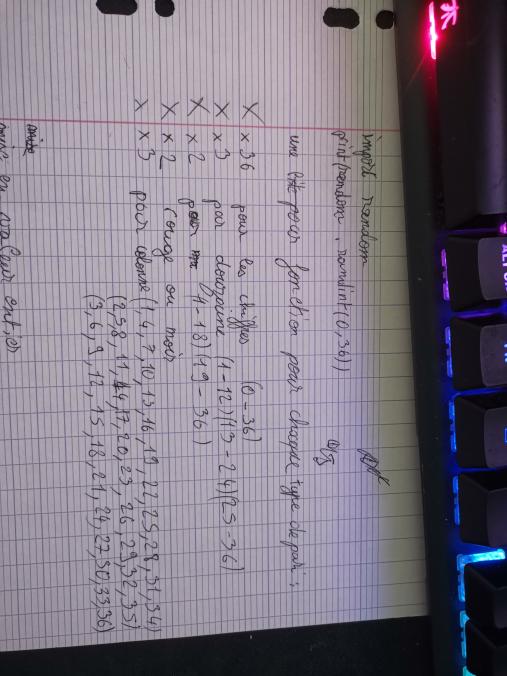 import random
print(random.randint(0,36))
une pour fonction pour chaque type de pari :
X x 36 pour les chiffres (0-36)
X x 3 par douzaine (1-12)(13-24)(25-36)
X x 2 (1-18)(19-36)
X x 2 rouge ou noir
X x 3 pour colonne (1,4,7,10,13,16,19,22,25,28,31,34)
(2,5,8,11,14,17,20,23,26,29,32,35)
(3,6,9,12,15,18,21,24,27,30,33,36)
mise en valeur